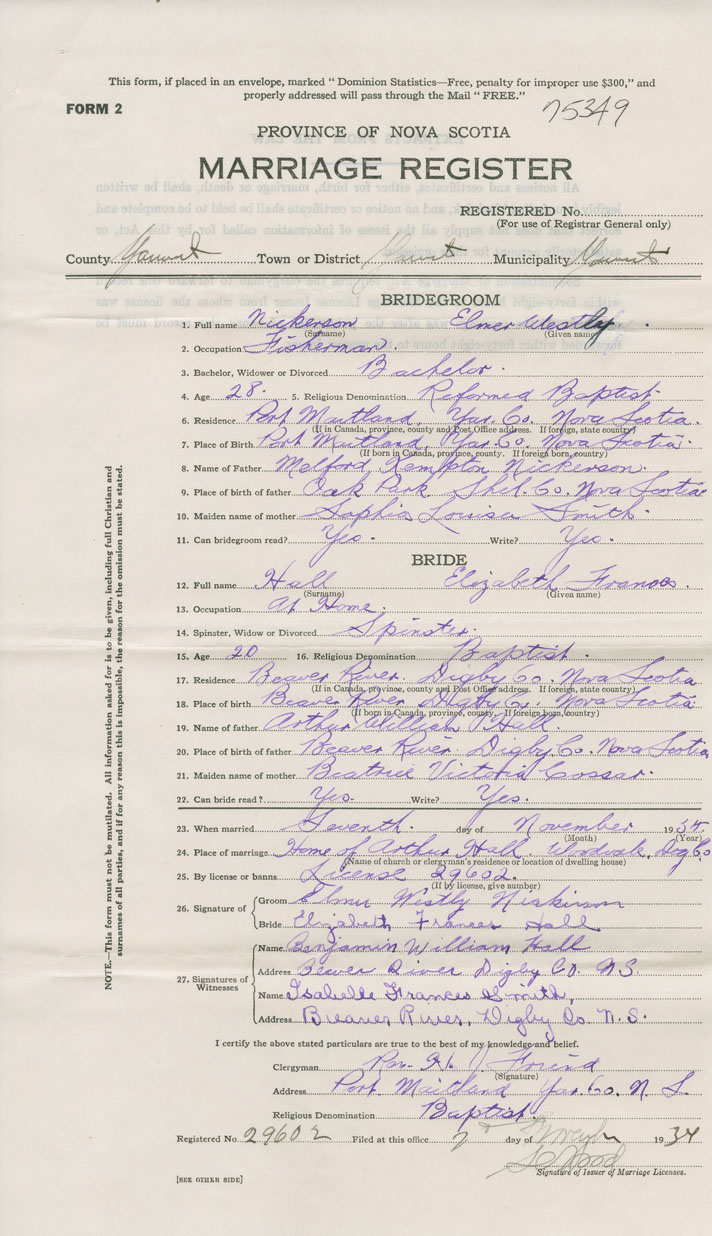 This form, if placed in an envelope, marked “ Dominion Statistics—Free, penalty for improper use $300,” and
properly addressed will pass through the Mail “ FREE.”
FORM 2
75349
PROVINCE OF NOVA SCOTIA
MARRIAGE REGISTER
REGISTERED No.
(For use of Registrar General only)
County Town or District Municipality
BRIDEGROOM
1. Full name Nickerson Elmer Westly
(Surname) (Given name)
2. Occupation Fisherman.
3. Bachelor, Widower or Divorced Bachelor.
4. Age 28. 5. Religious Denomination Reformed Baptist.
6. Residence Port Maitland, Yar. Co. Nova Scotia.
(If in Canada, province, county and Post Office address. If foreign, state country)
7. Place of Birth Port Maitland, Yar. Co. Nova Scotia.
(If born in Canada, province, county. If foreign born, country)
8. Name of Father Melford Kempton Nickerson.
9. Place of birth of father Oak Park Shel. Co. Nova Scotia
10. Maiden name of mother Sophia Louisa Smith.
11. Can bridegroom read? Yes. Write? Yes.
BRIDE
12. Full name Hall Elizabeth Frances.
(Surname) (Given name)
13. Occupation At Home.
14. Spinster, Widow or Divorced Spinster.
15. Age 20 16. Religious Denomination Baptist.
17. Residence Beaver River. Digby Co. Nova Scotia
(If in Canada, province, county and Post Office address. If foreign, state country)
18. Place of Birth Beaver River Digby Co. Nova Scotia
(If born in Canada, province, county. If foreign born, country)
19. Name of father Arthur William Hall
20. Place of birth of father Beaver River. Digby Co. Nova Scotia
21. Maiden name of mother Beatrice Victoria Cossar.
22. Can bride read? Yes. Write? Yes.
23. When married Seventh. day of November 1934.
(Month) (Year)
24. Place of marriage Home of Arthur Hall, Dig Co
(Name of church or clergyman's residence or location of dwelling house)
25. By license or banns License 29602.
(If by license, give number)
26. Signature of
Groom Elmer Westly Nickerson
Bride Elizabeth Frances Hall
27. Signatures of Witnesses
Name Benjamin William Hall
Address Beaver River Digby Co. N.S.
Name Isabelle Frances Smith,
Address Beaver River, Digby Co. N.S.
I certify the above stated particulars are true to the best of my knowledge and belief.
Clergyman Rev. Friend
(Signature)
Address Port Maitland Yar. Co. N. S.
Religious Denomination Baptist.
Registered No. 29602 Filed at this office 7 day of 1934
Signature of Issuer of Marriage Licenses.
[SEE OTHER SIDE]
NOTE.—This form must not be mutilated. All information asked for is to be given, including full Christian and
surnames of all parties, and if for any reason this is impossible, the reason for the omission must be stated.